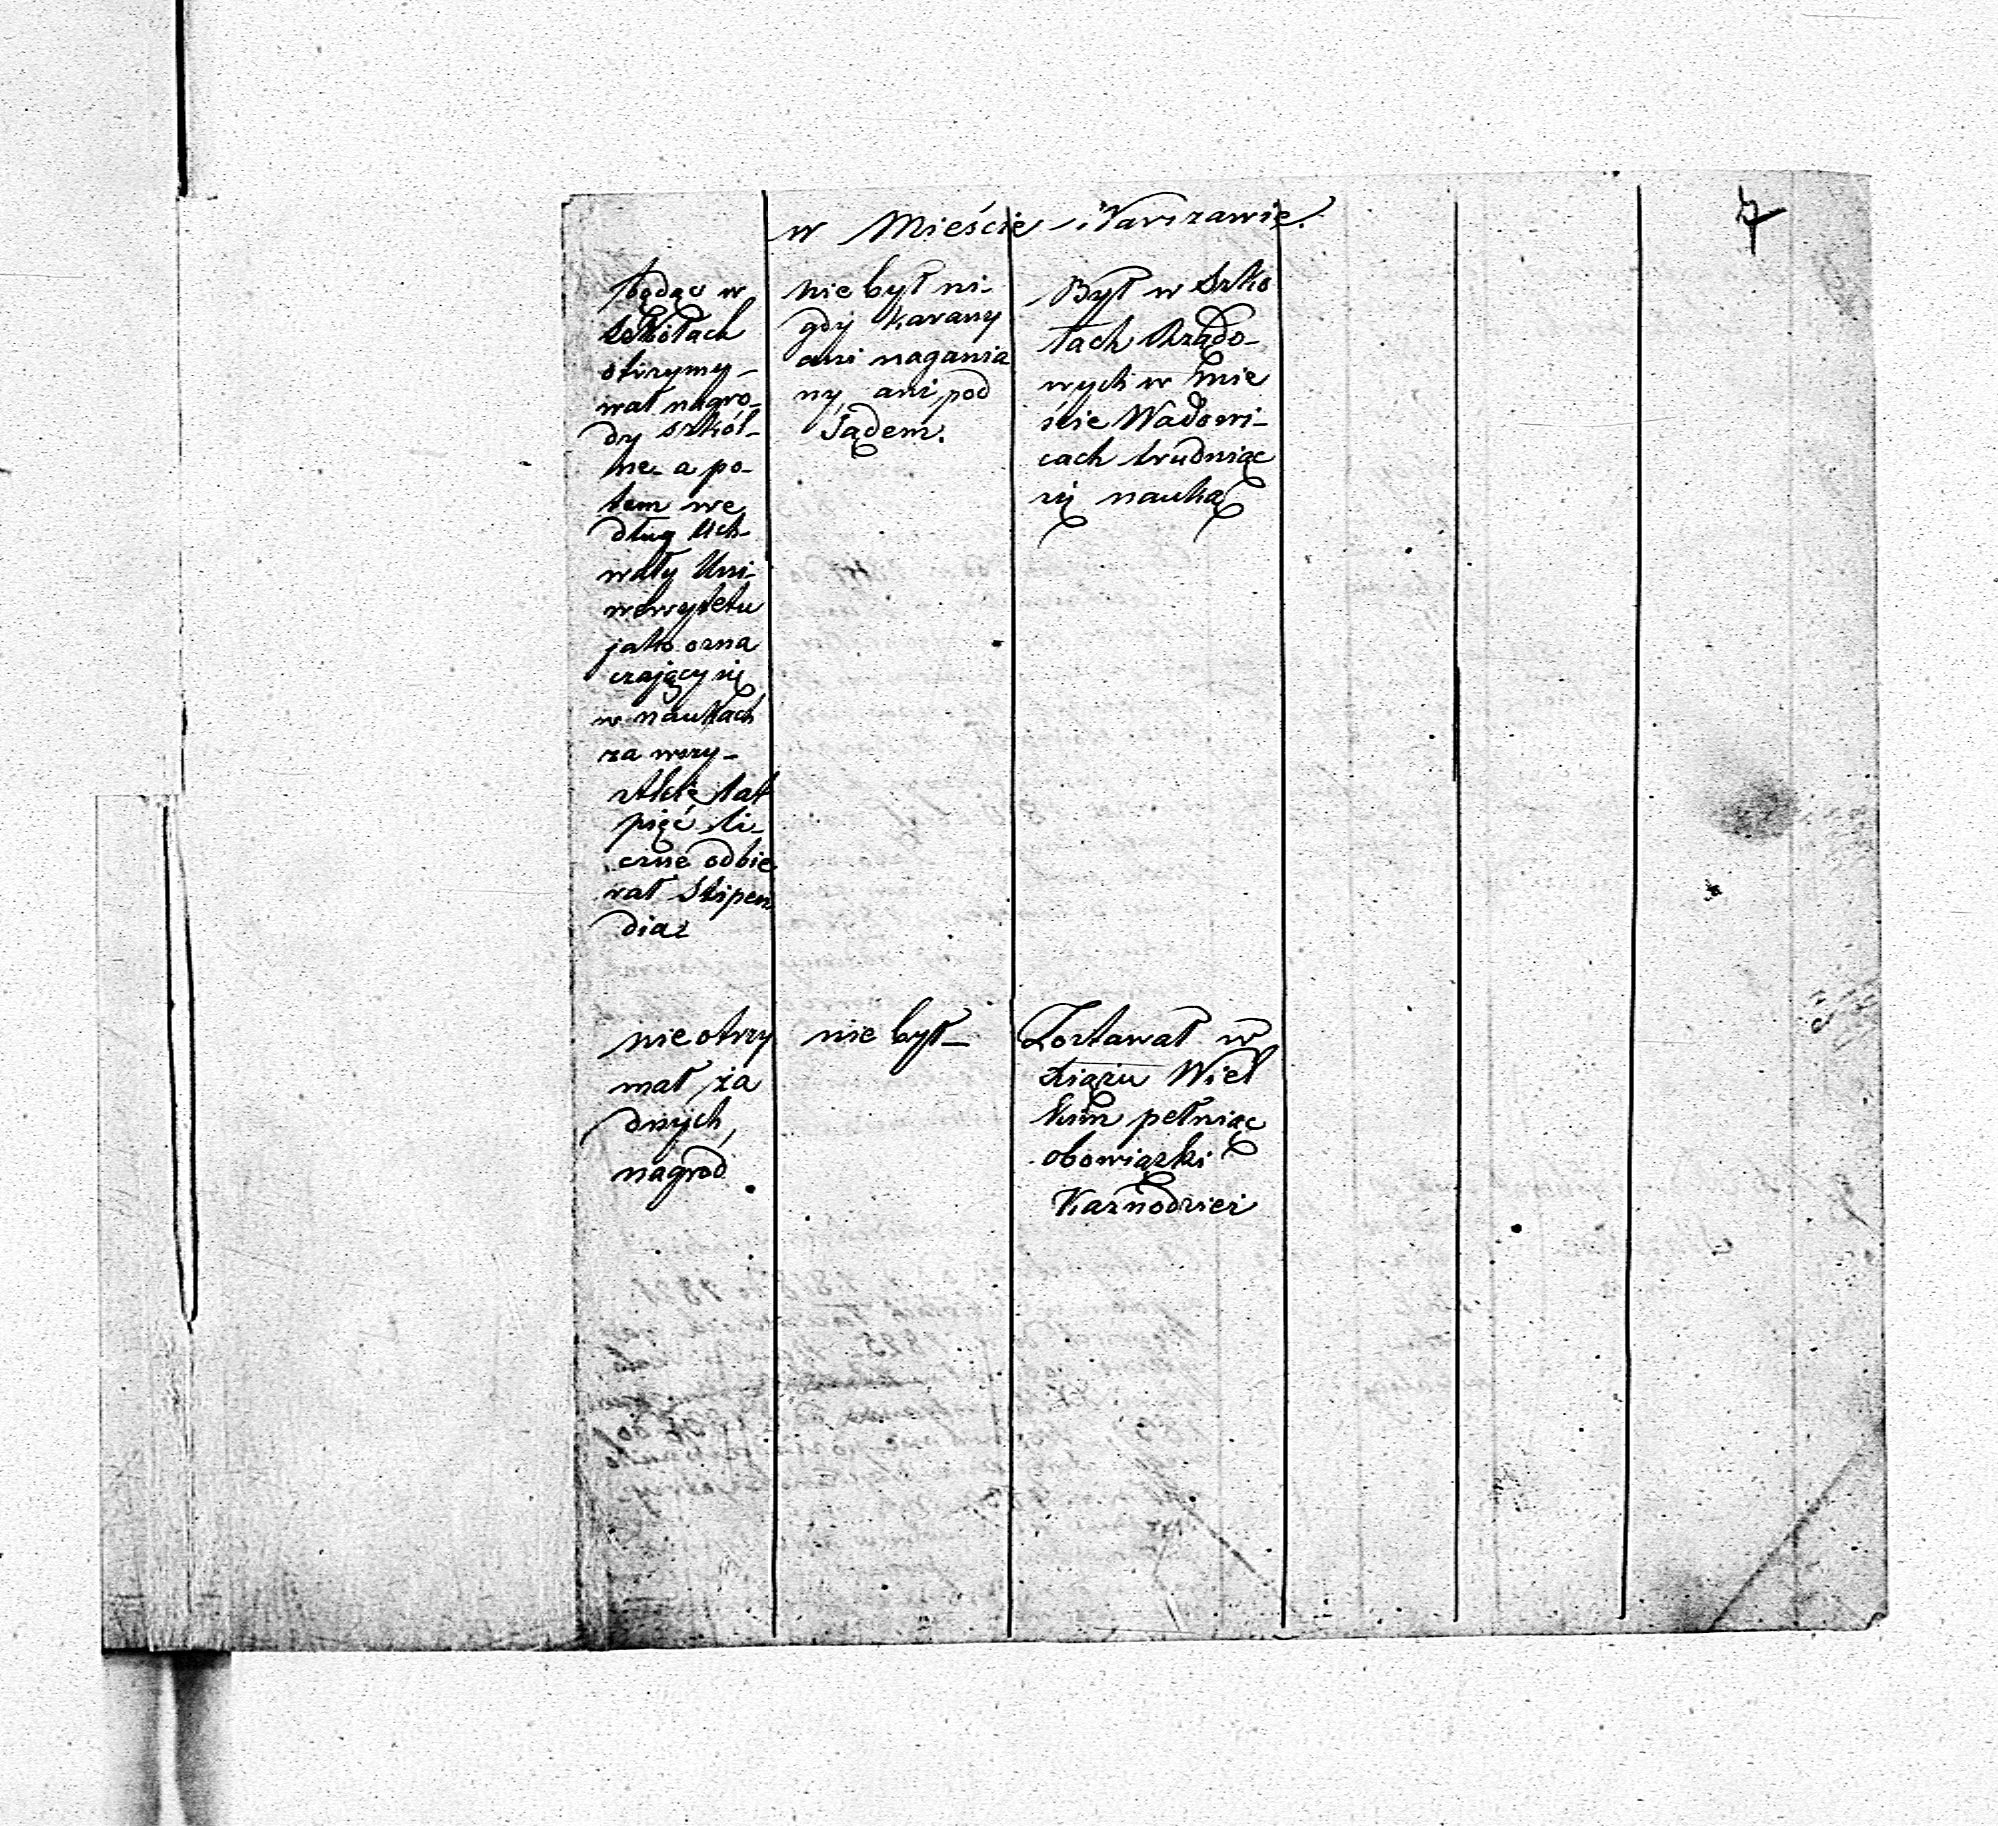 w Mieście Warszawie.
7
będąc w
szkołach
otrzymy-
wał nagro-
dy szkól-
ne a po-
tem we
dług Uch-
wały Uni-
wersytetu
jako ozna
czający się
w naukach
za wszy-
stkie lat
pięć li-
czne odbie
rał Stipen
dia
nie był ni-
gdy karany
ani nagania
ny ani pod
Sądem.
Był w Szko
łach Rządo-
wych w mie
ście Wadowi-
cach trudniąc
się nauką
nie otrzy
mał ża
dnych
nagród
nie był
Zostawał w
Xięziu Wiel
kim pełniąc
obowiązki
Kaznodziei